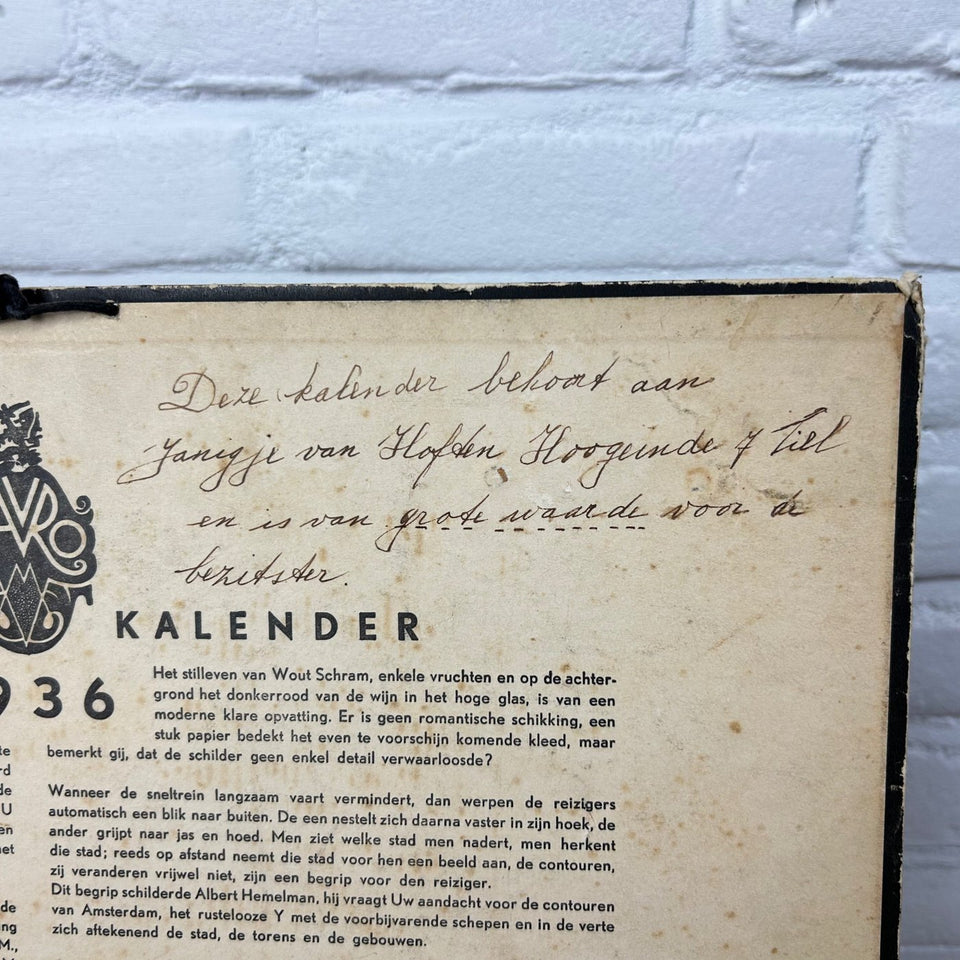 Deze kalender behoort aan
Janigje van Hoften Hoogeinde 7 Tiel
en is van grote waarde voor de
bezitster.
AVRO
KALENDER
1936
Het stilleven van Wout Schram, enkele vruchten en op de achter-
grond het donkerrood van de wijn in het hoge glas, is van een
moderne klare opvatting. Er is geen romantische schikking, een
stuk papier bedekt het even te voorschijn komende kleed, maar
bemerkt gij, dat de schilder geen enkel detail verwaarloosde?
Wanneer de sneltrein langzaam vaart vermindert, dan werpen de reizigers
automatisch een blik naar buiten. De een nestelt zich daarna vaster in zijn hoek, de
ander grijpt naar jas en hoed. Men ziet welke stad men nadert, men herkent
die stad; reeds op afstand neemt die stad voor hen een beeld aan, de contouren,
zij veranderen vrijwel niet, zijn een begrip voor den reiziger.
Dit begrip schilderde Albert Hemelman, hij vraagt Uw aandacht voor de contouren
van Amsterdam, het rustelooze Y met de voorbijvarende schepen en in de verte
zich aftekenend de stad, de torens en de gebouwen.